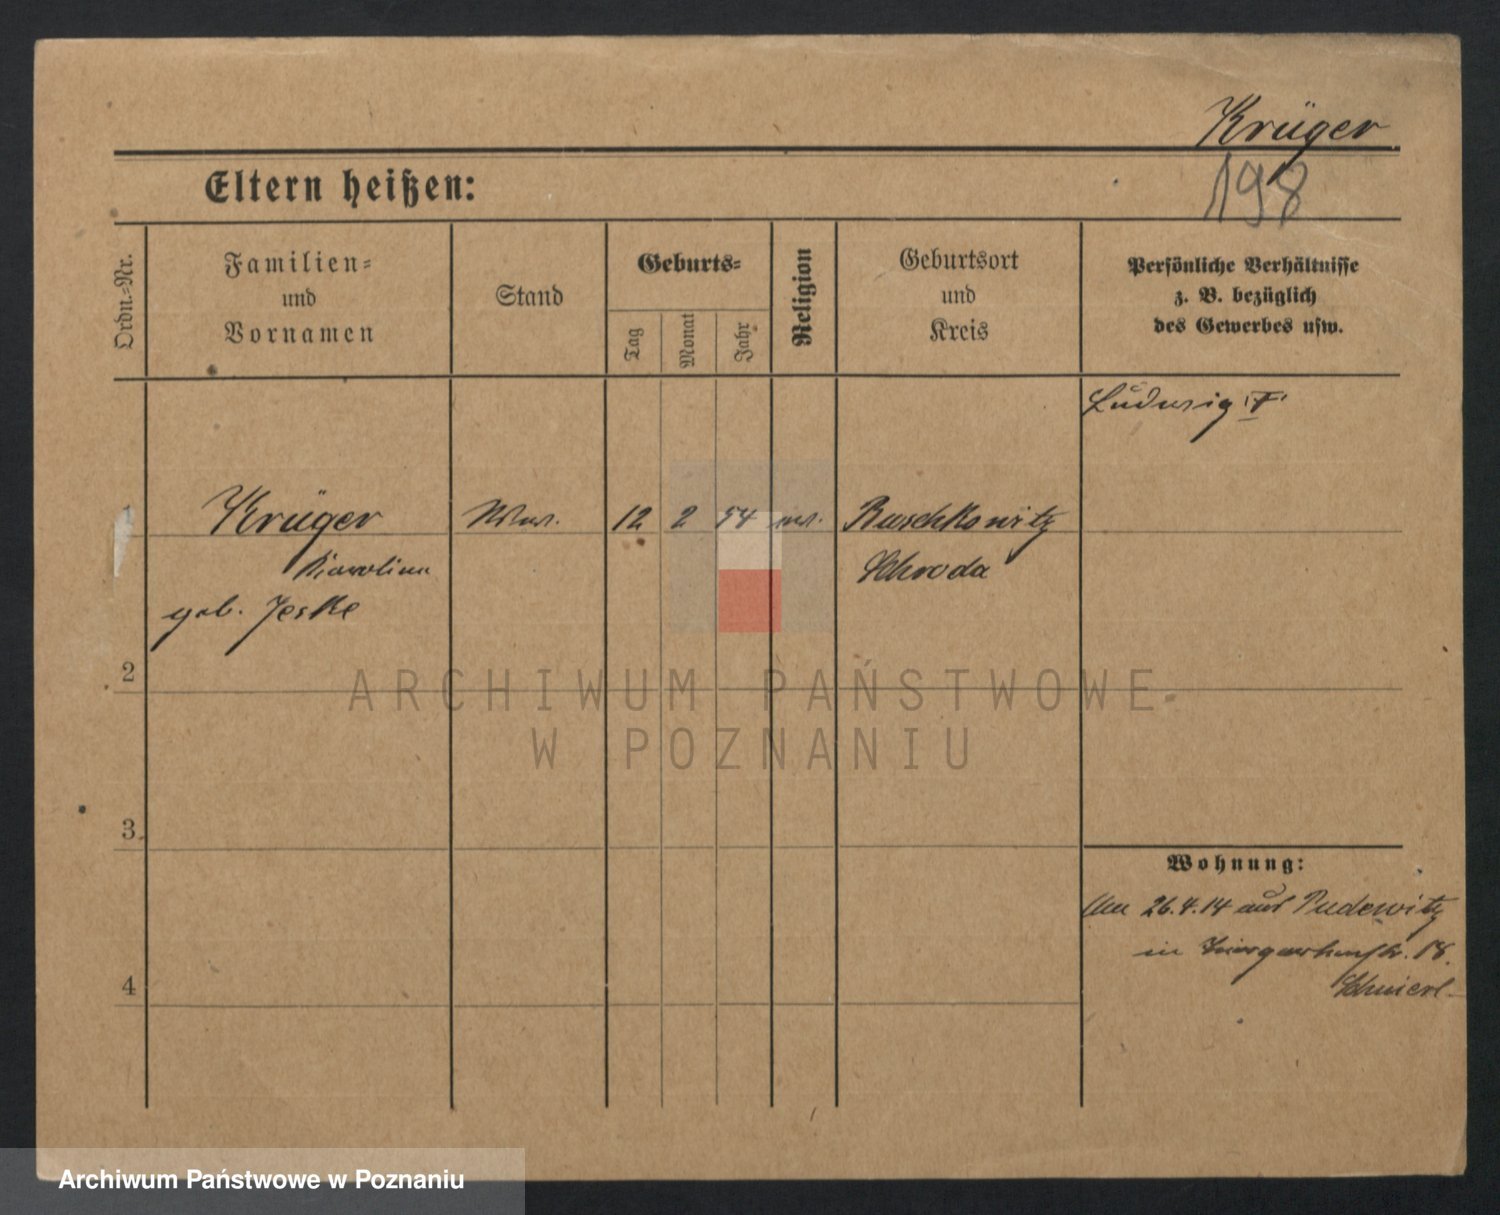 Krüger
198
Eltern heißen:
Ordn.-Nr.
Familien-
und
Vornamen
Stand
Geburts-
Tag
Monat
Jahr
Religion
Geburtsort
und
Kreis
Persönliche Verhältnisse
z. B. bezüglich
des Gewerbes usw.
Ludwig
1
Krüger
Wwe.
12 2 54
Karoline
Schroda
geb. Jeske
2
ARCHIWUM PAŃSTWOWE
W POZNANIU
3
Wohnung:
26.4.14 aus Pudewitz
in Tiergartenstr. 18.
4
Archiwum Państwowe w Poznaniu